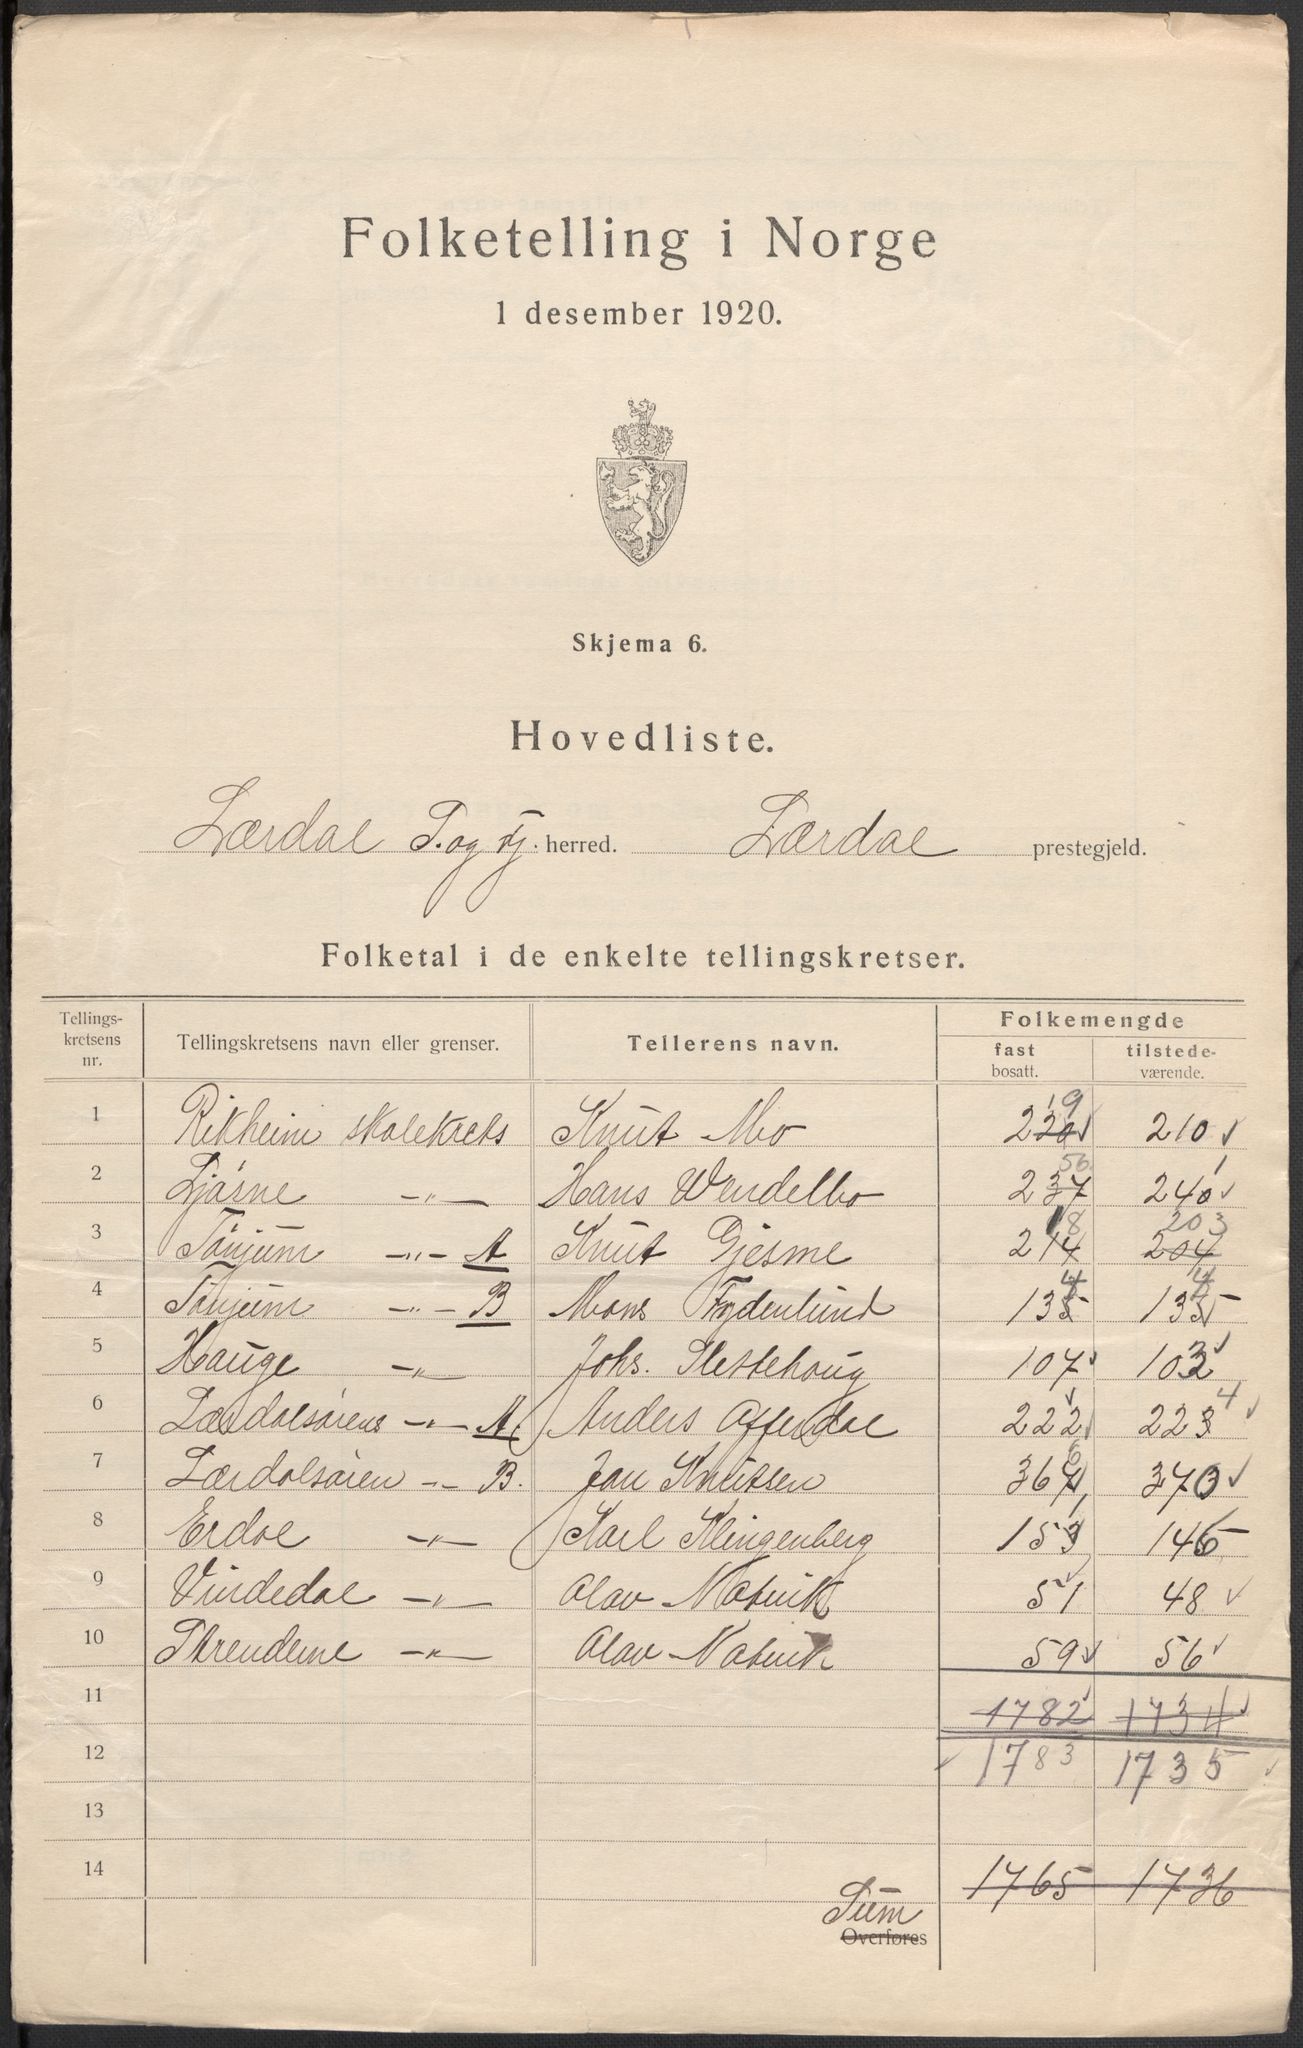 Folketelling i Norge
1 desember 1920.
Skjema 6.
Hovedliste.
Lærdal herred. Lærdal prestegjeld.
Folketal i de enkelte tellingskretser.
Tellings-kretsens nr. Tellingskretsens navn eller grenser. Tellerens navn. Folkemengde
fast bosatt. tilstede-værende.
1 Rikheim skolekrets Knut Mo 220 19 210
2 Ljøsne -"- Hans Wendelbo 237 56 240 1
3 Tønjum -"- A Knut Gjesme 214 18 204 203
4 Tønjum -"- B Mons Frydenlund 135 4 135 4
5 Hauge -"- Johs. 107 103
6 Lærdalsørens -"- A Anders Offerdal 222 223 4
7 Lærdalsøren -"- B. Jan Knutsen 367 6 370
8 Erdal -"- Karl Klingenberg 153 1 145
9 Vindedal -"- Olav 51 48
10 -"- Olav 59 56
11 1782 1734
12 1783 1735
13
14 1765 1736
Sum
Overføres